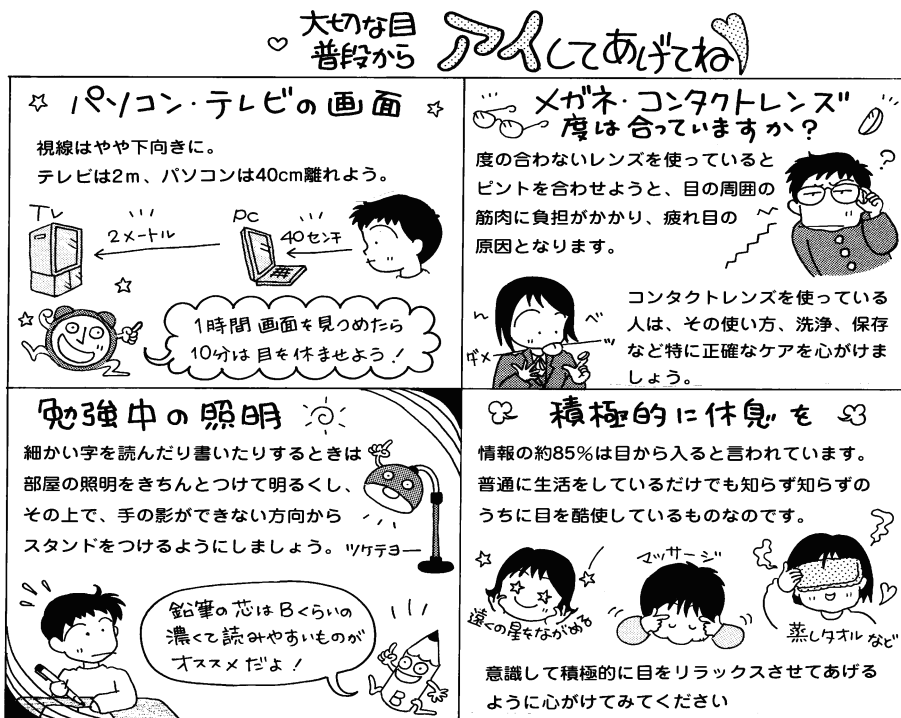 大切な目
普段から
アイしてあげてね
パソコン・テレビの画面
視線はやや下向きに。
テレビは2m、パソコンは40cm離れよう。
TV
2メートル
PC
40センチ
1時間画面を見つめたら
10分は目を休ませよう!
メガネ・コンタクトレンズ
度は合っていますか?
度の合わないレンズを使っていると
ピントを合わせようと、目の周囲の
筋肉に負担がかかり、疲れ目の
原因となります。
?
ダメ
コンタクトレンズを使っている
人は、その使い方、洗浄、保存
など特に正確なケアを心がけま
しょう。
勉強中の照明
細かい字を読んだり書いたりするときは
部屋の照明をきちんとつけて明るくし、
その上で、手の影ができない方向から
スタンドをつけるようにしましょう。
ツケテヨー
鉛筆の芯はBくらいの
濃くて読みやすいものが
オススメだよ!
B
積極的に休息を
情報の約85%は目から入ると言われています。
普通に生活をしているだけでも知らず知らずの
うちに目を酷使しているものなのです。
遠くの星をながめる
マッサージ
蒸しタオルなど
意識して積極的に目をリラックスさせてあげる
ように心がけてみてください